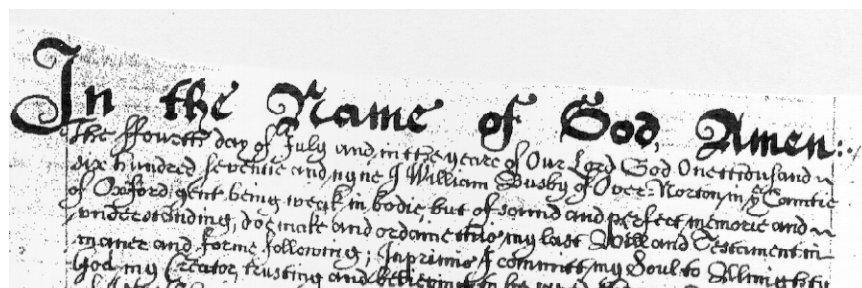 In the Name of God, Amen:
The ffourth day of July and in the yeare of Our Lord God One thousand
six hundred seventie and nyne I William Busby of Over-Norton, in ye Comtie
of Oxford, gent being weak in bodie, but of sound and perfect memorie and
understanding, doe make and ordaine this my last Will and Testament in
maner and forme following; Inprimis I committ my Soul to Allmighty
God my Creator, trusting and believing to be